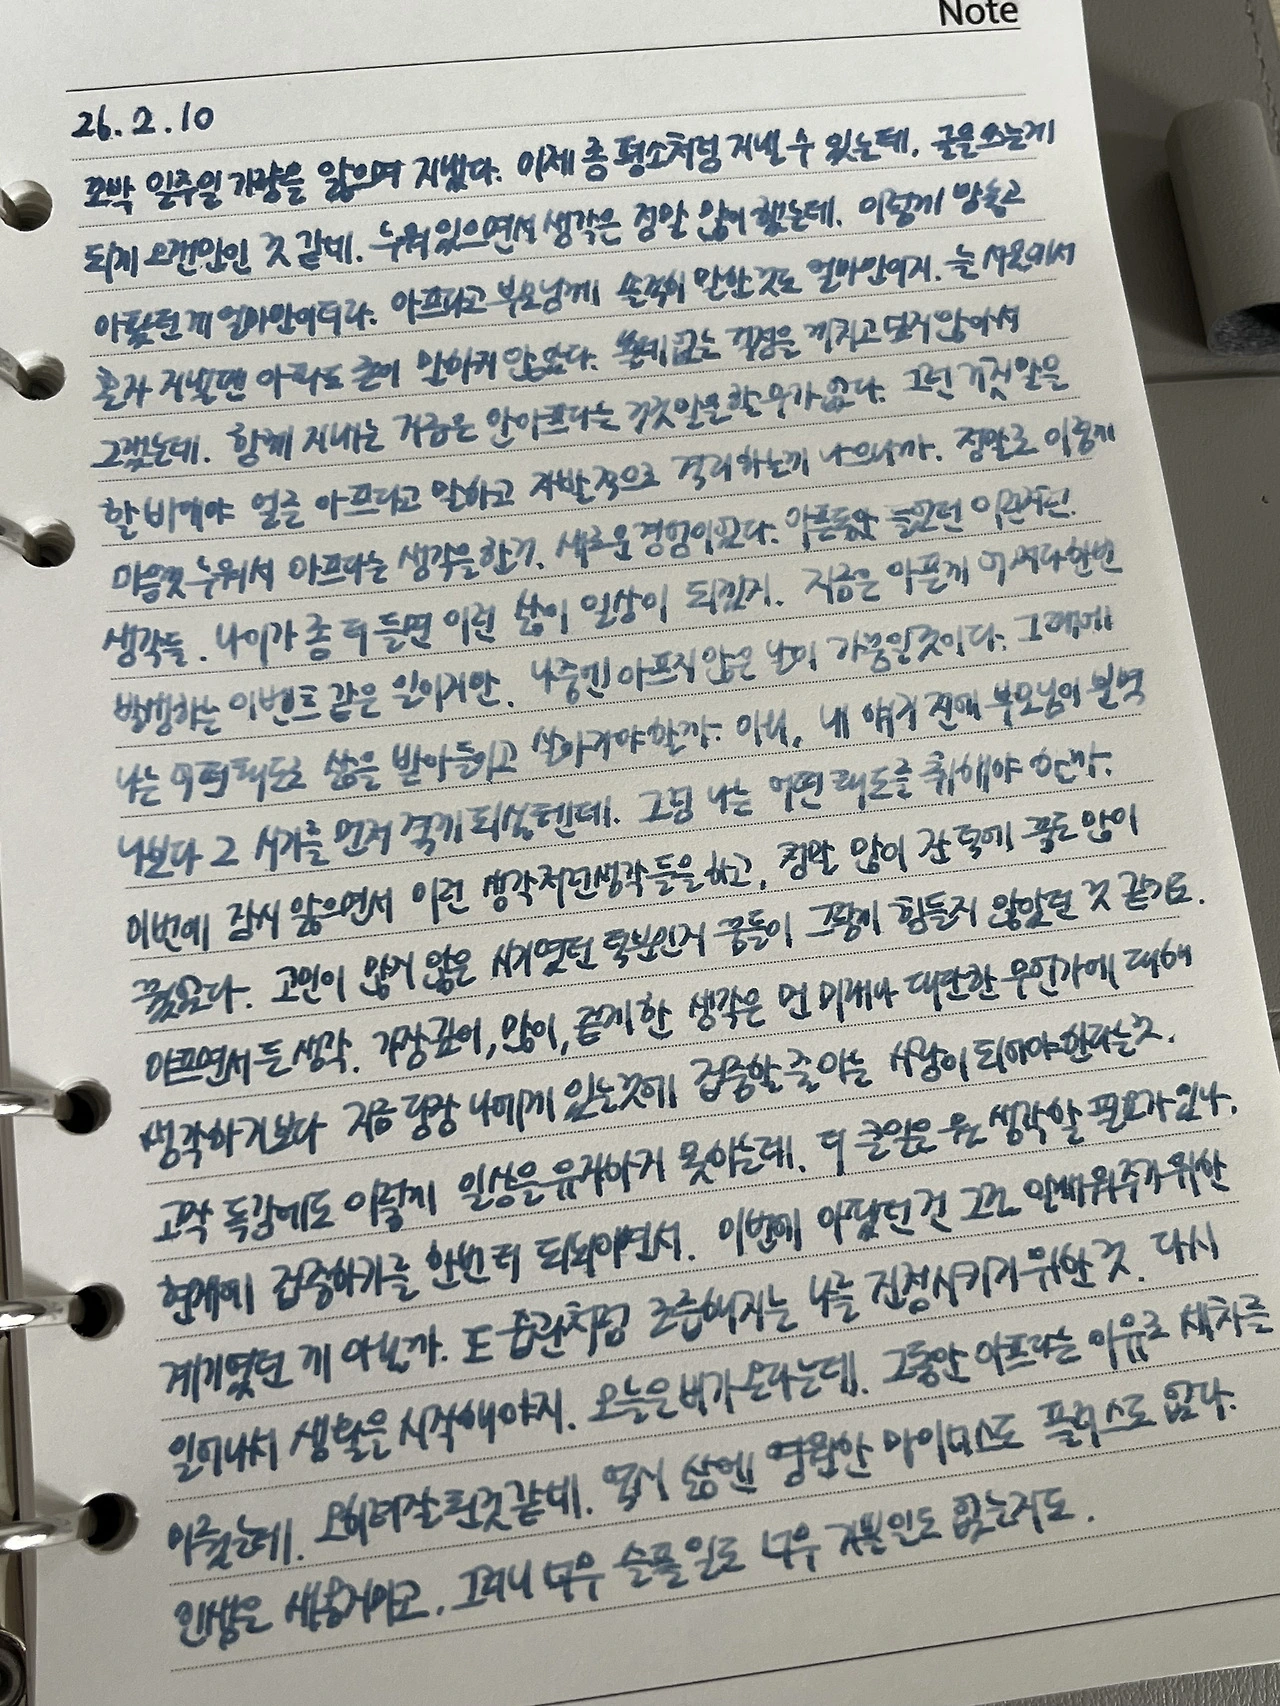 Note
26.2.10
꼬박 일주일 가량을 앓으며 지냈다. 이제 좀 평소처럼 지낼 수 있는데. 글을 쓰는게
되게 오랜만인 것 같네. 누워있으면서 생각은 정말 많이 했는데. 이렇게 맘놓고
아팠던게 얼마만이더라. 아프다고 부모님께 솔직히 말한 것도 얼마만이지. 늘 서울에서
혼자 지낼땐 아파도 굳이 말하지 않았다. 쓸데없는 걱정을 끼치고 싶지 않아서
그랬는데. 함께 지내는 지금은 안아프다는 거짓말을 할 수가 없다. 그런 거짓말을
할 바에야 얼른 아프다고 말하고 자발적으로 격리하는게 나으니까. 정말로 이렇게
마음껏 누워서 아프다는 생각을 한게. 새로운 경험이었다. 아픈동안 들었던 이런저런
생각들. 나이가 좀 더 들면 이런 삶이 일상이 되겠지. 지금은 아픈게 어쩌다 한번
발생하는 이벤트 같은 일이지만. 나중엔 아프지 않은 날이 가뭄일것이다. 그때에
나는 어떤 태도로 삶을 받아들이고 살아가야 할까. 아니, 내 얘기 전에 부모님이 먼저
나보다 그 시기를 먼저 겪게 되실텐데. 그럼 나는 어떤 태도를 취해야 할까.
이번에 잠시 앓으면서 이런 생각 저런생각들을 하고, 정말 많이 잔 덕에 꿈도 많이
꿨었다. 고민이 많지 않은 시기였던 덕분인지 꿈들이 그렇게 힘들지 않았던 것 같기도.
아프면서 든 생각. 가장 깊이, 많이, 길게 한 생각은 먼 미래나 대단한 무언가에 대해
생각하기보다 지금 당장 나에게 있는것에 집중할 줄 아는 사람이 되어야 한다는 것.
고작 독감에도 이렇게 일상을 유지하지 못하는데. 더 큰일은 뭔 생각할 필요가 있나.
현재에 집중하기를 한번 더 되뇌이면서. 이번에 아팠던 건 그런 안배 위주가 위한
계기였던 게 아닐까. 또 습관처럼 조급해지는 나를 진정시키기 위한 것. 다시
일어나서 생활을 시작해야지. 오늘은 비가 온다는데. 그동안 아프다는 이유로 세차를
미뤘는데. 오히려 잘 된것 같네. 역시 삶엔 영원한 마이너스도 플러스도 없다.
인생은 새옹지마고. 그러니 너무 슬플 일도 너무 기쁠 일도 없는거고.